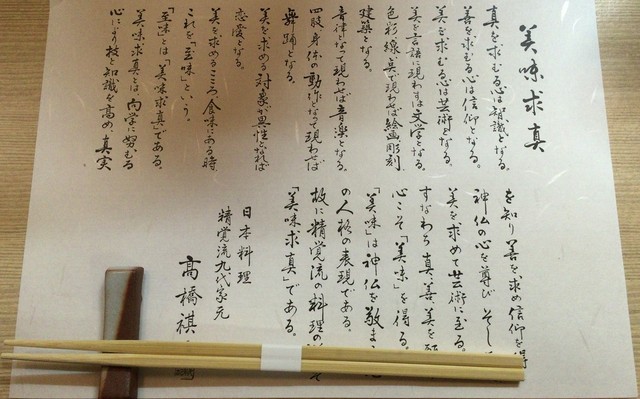 美味求真
真を求むる心は智識となる。
善を求むる心は信仰となる。
美を求むる心は芸術となる。
美を言語に現わすは文学となる。
色彩線を以て現わせば絵画彫刻
建築となる。
音律となって現わせば音楽となる。
四肢身体の動作になって現わせば
舞踊となる。
美を求める対象が異性となれば
恋愛となる。
美を求めるこころ、食味にある時
これを「至味」という。
「至味とは「美味求真」である。
美味求真とは、向学に努むる
心により技と知識を高め、真実
を知り善を求め信仰を得
神仏の心を尊び そし
美を求めて芸術に至る。
すなわち真、善、美を
心こそ「美味」を得る。
「美味」は神仏を敬ま
の人格の表現である。
故に精覚流の料理の
「美味求真」である。
日本料理
精覚流九代家元
高橋祺